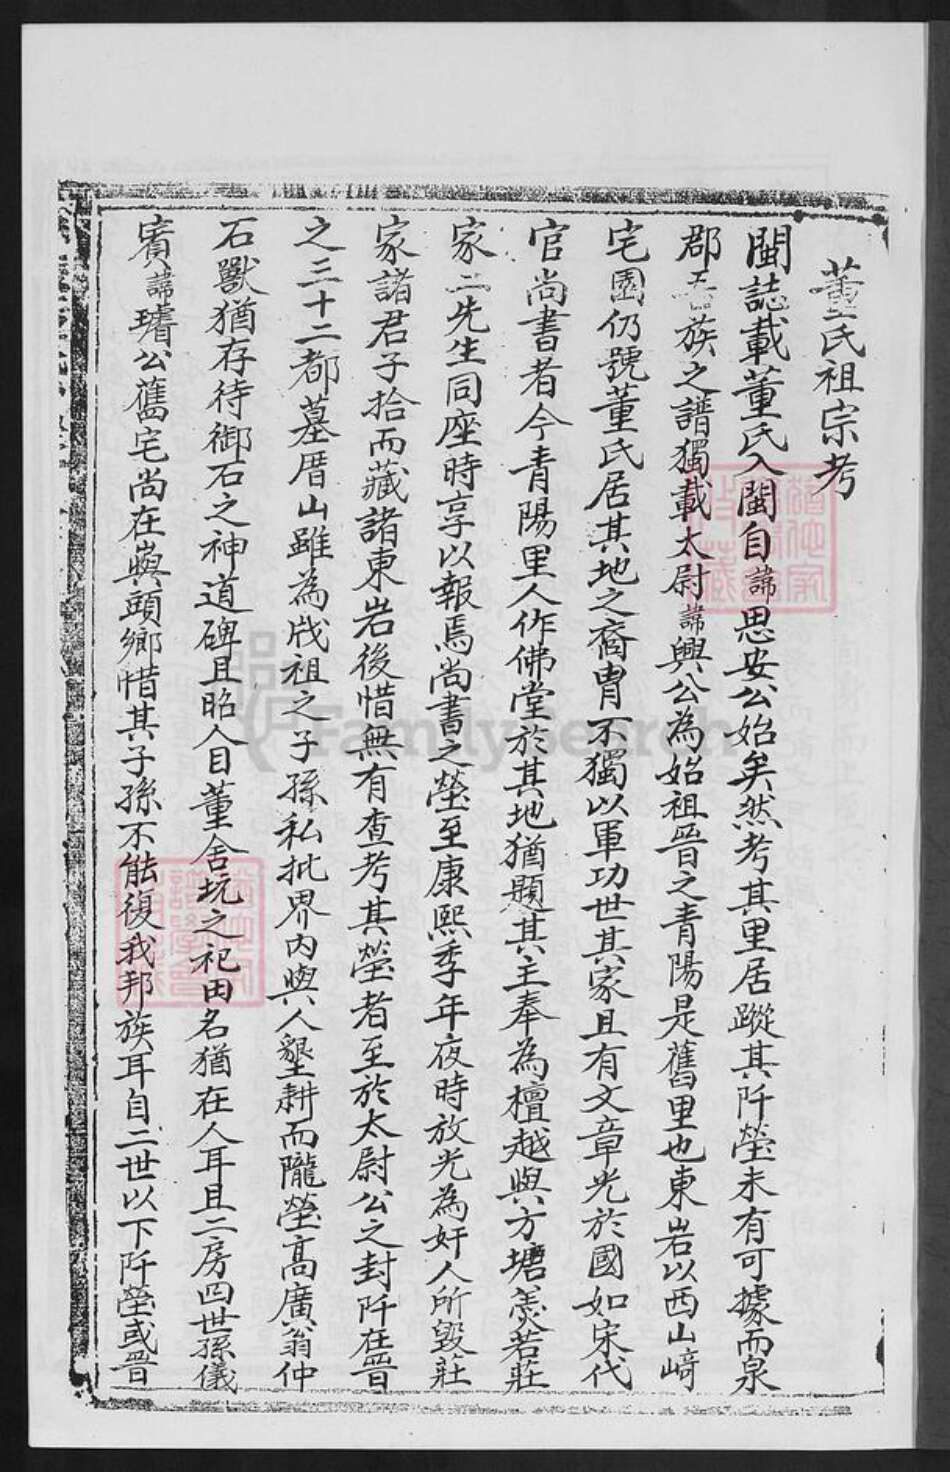 董氏祖宗考
閩誌載董氏入閩自諱思安公始矣然考其里居蹤其阡塋未有可據而泉
郡吾族之譜獨載太尉諱興公為始祖晉之青陽是舊里也東岩以西山崎
宅園仍號董氏居其地之裔胄不獨以軍功世其家且有文章光於國如宋代
官尚書者今青陽里人作佛堂於其地猶題其主奉為檀越與方塘羨若莊
家二先生同座時享以報焉尚書之塋至康熙季年夜時放光為奸人所毀莊
家諸君子拾而藏諸東岩後惜無有查考其塋者至於太尉公之封阡在晉
之三十二都墓厝山雖為戕祖之子孫私批界內與人墾耕而隴塋高廣翁仲
石獸猶存待御石之神道碑且昭人目董舍坑之祀田名猶在人耳且二房四世孫儀
賓諱璿公舊宅尚在嶼頭鄉惜其子孫不能復我邦族耳自二世以下阡塋或晉
FamilySearch